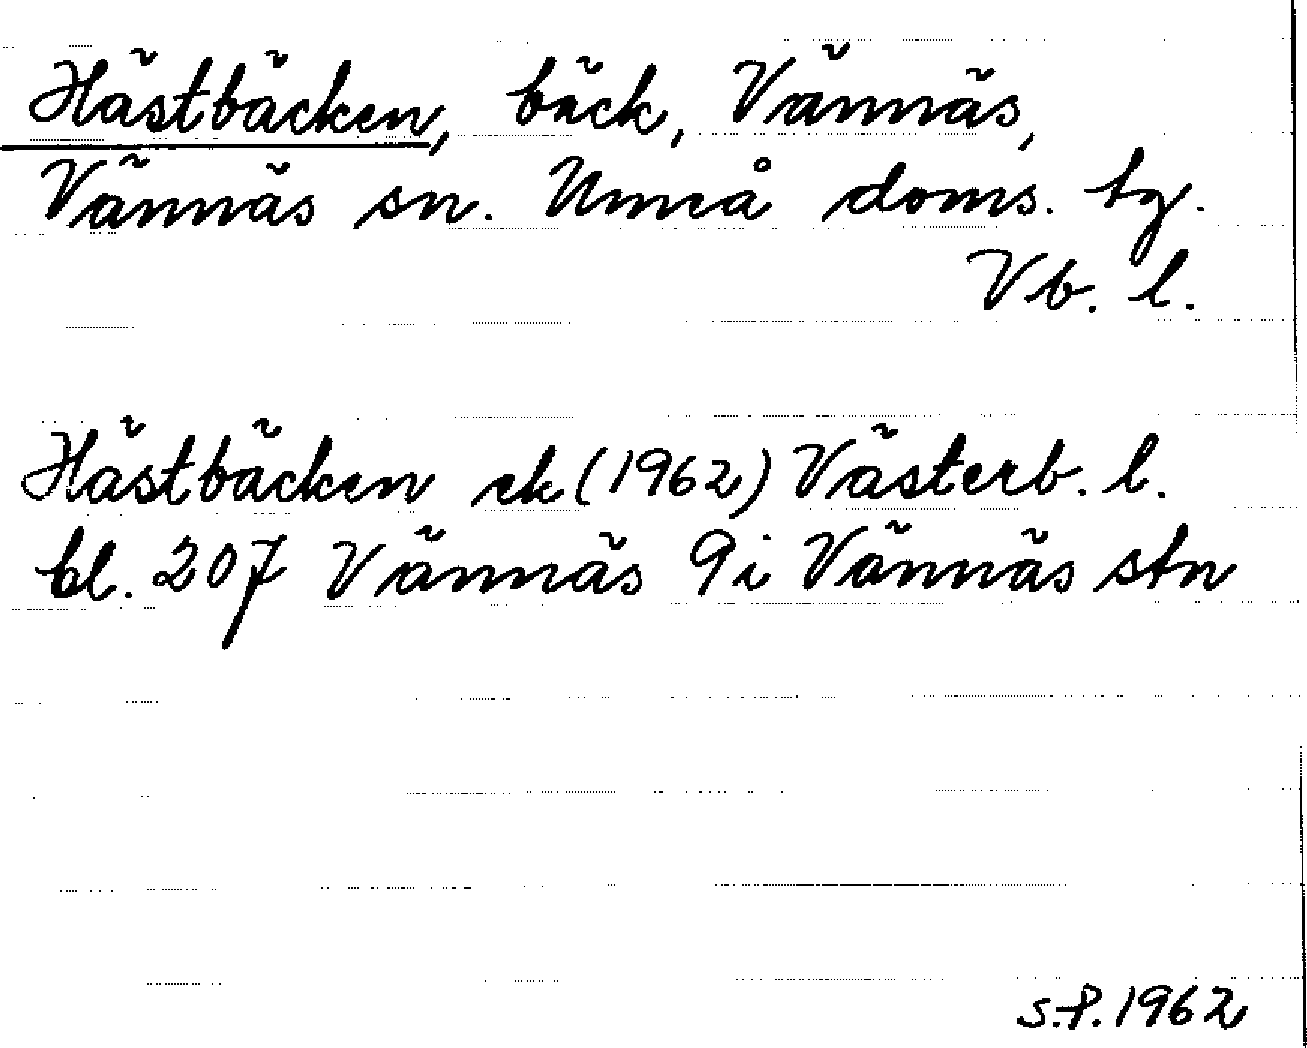 Hästbäcken, bäck, Vännäs,
Vännäs sn. Umeå doms. tg.
Vb. l.
Hästbäcken ek (1962) Västerb. l.
bl. 207 Vännäs 9i Vännäs stn
S.P. 1962